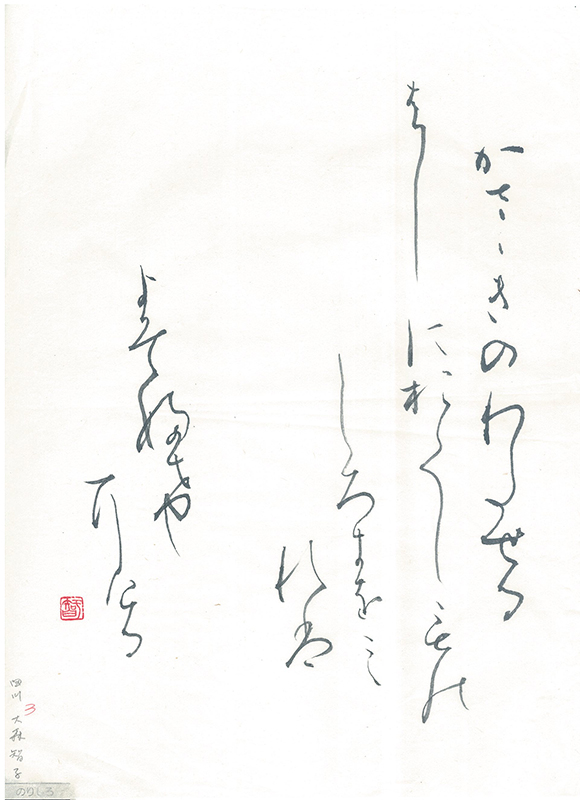 かさゝきのわたせる
はしにおくしもの
しろきをみ
れは
よそふ
ける
智
四川 大森智子
3
のりしろ